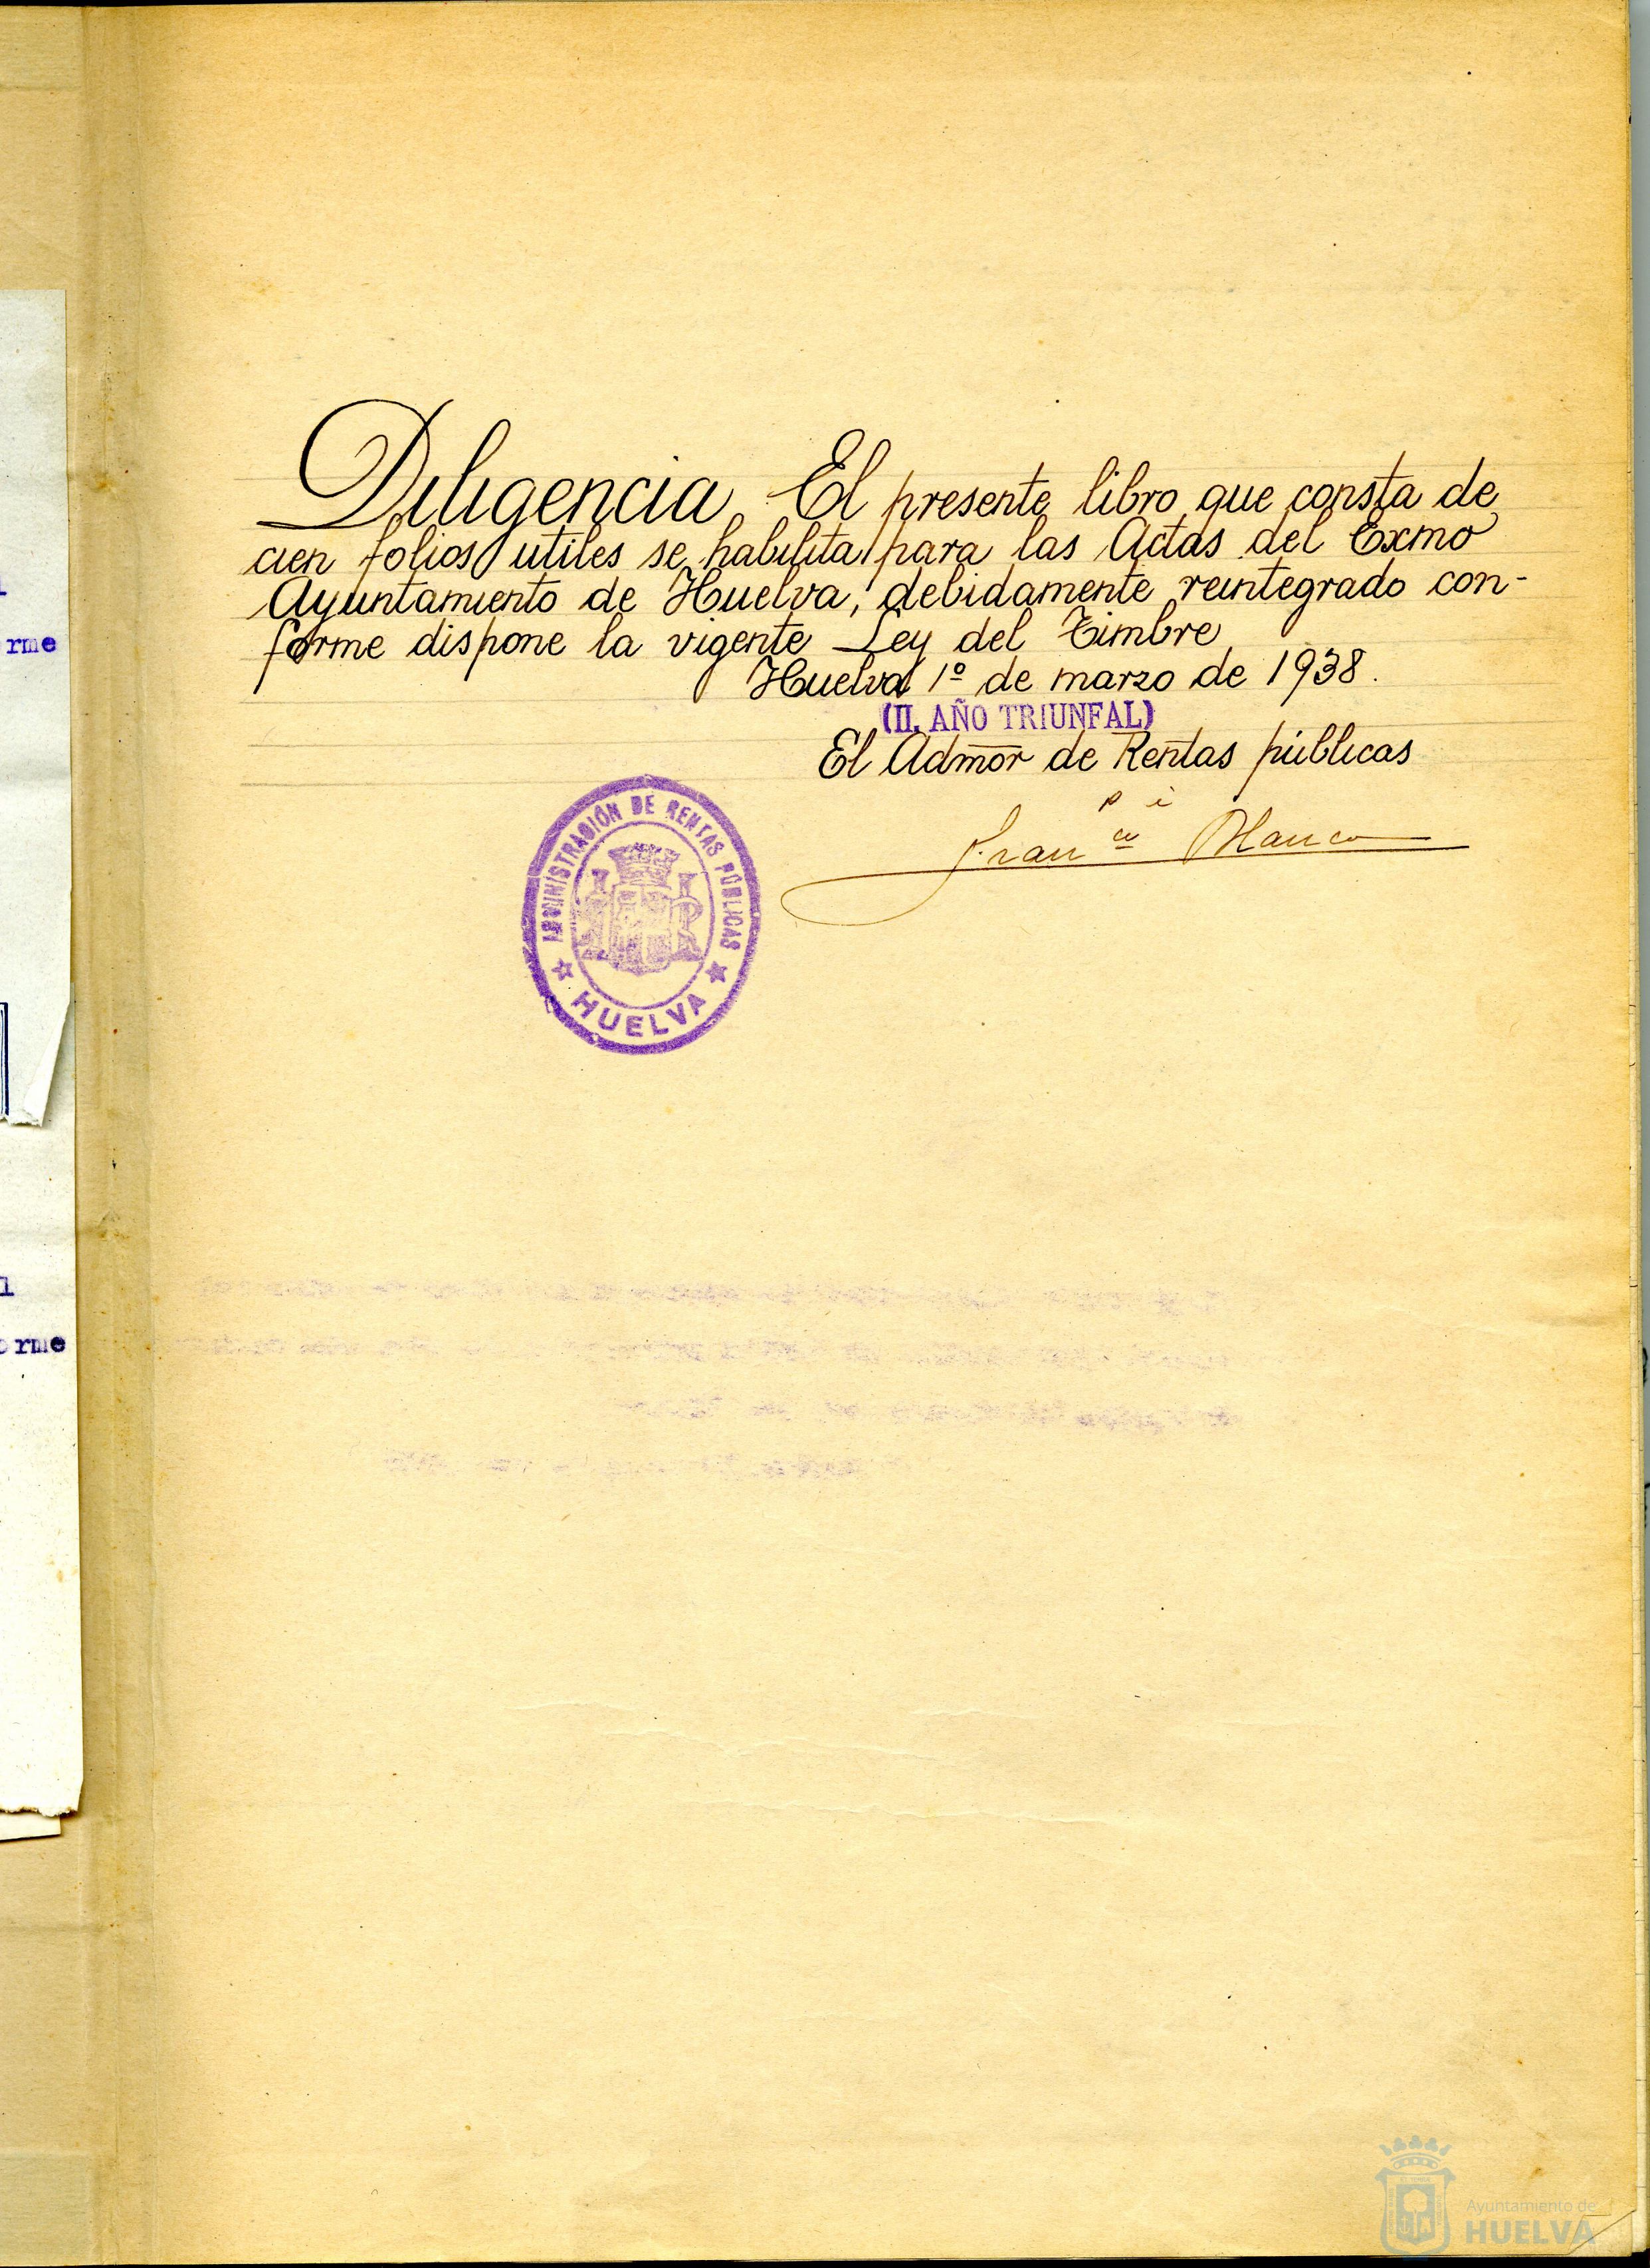 Diligencia El presente libro que consta de
cien folios utiles se habilita para las Actas del Excmo
Ayuntamiento de Huelva, debidamente reintegrado con-
forme dispone la vigente Ley del Timbre
Huelva 1º de marzo de 1938.
(II. AÑO TRIUNFAL)
El Admor de Rentas públicas
p i
Fran co Blanco
ADMINISTRACIÓN DE RENTAS PÚBLICAS
HUELVA
rme
orme
Ayuntamiento de
HUELVA